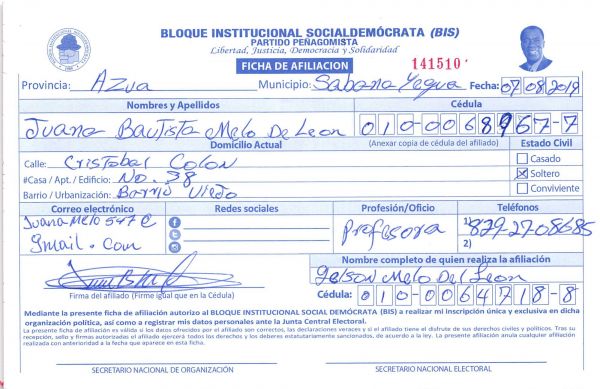 BLOQUE INSTITUCIONAL SOCIALDEMÓCRATA (BIS)
PARTIDO PEÑAGOMISTA
Libertad, Justicia, Democracia y Solidaridad
FICHA DE AFILIACION 141510
Provincia: Azua Municipio: Sabana Yegua Fecha: 07 08 2019
Nombres y Apellidos Cédula
Juana Bautista Melo De Leon 010-0068967-7
Domicilio Actual (Anexar copia de cédula del afiliado) Estado Civil
Calle: Cristobal Colon Casado
#Casa / Apt. / Edificio: No. 38 Soltero
Barrio / Urbanización: Barrio Viedo Conviviente
Correo electrónico Redes sociales Profesión/Oficio Teléfonos
Juana Melo 547 @ Profesora 1) 829 2708685
Gmail. Com 2)
Nombre completo de quien realiza la afiliación
Gelson Melo Del Leon
Firma del afiliado (Firme igual que en la Cédula) Cédula: 010-0064718-8
Mediante la presente ficha de afiliación autorizo al BLOQUE INSTITUCIONAL SOCIAL DEMÓCRATA (BIS) a realizar mi inscripción única y exclusiva en dicha
organización política, así como a registrar mis datos personales ante la Junta Central Electoral.
La presente ficha de afiliación es válida si los datos ofrecidos por el afiliado son correctos, las declaraciones veraces y si el afiliado tiene el disfrute de sus derechos civiles y políticos. Tras su
recepción, sello y firmas autorizadas el afiliado ejercerá todos los derechos y los deberes estatutariamente sancionados, de acuerdo a la ley. La presente afiliación anula cualquier afiliación
realizada con anterioridad a la fecha que aparece en esta ficha.
SECRETARIO NACIONAL DE ORGANIZACIÓN SECRETARIO NACIONAL ELECTORAL